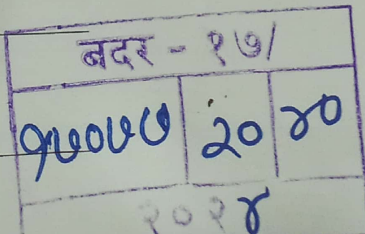 बदर - १७/
१७०७७ २० ४०
२०२४